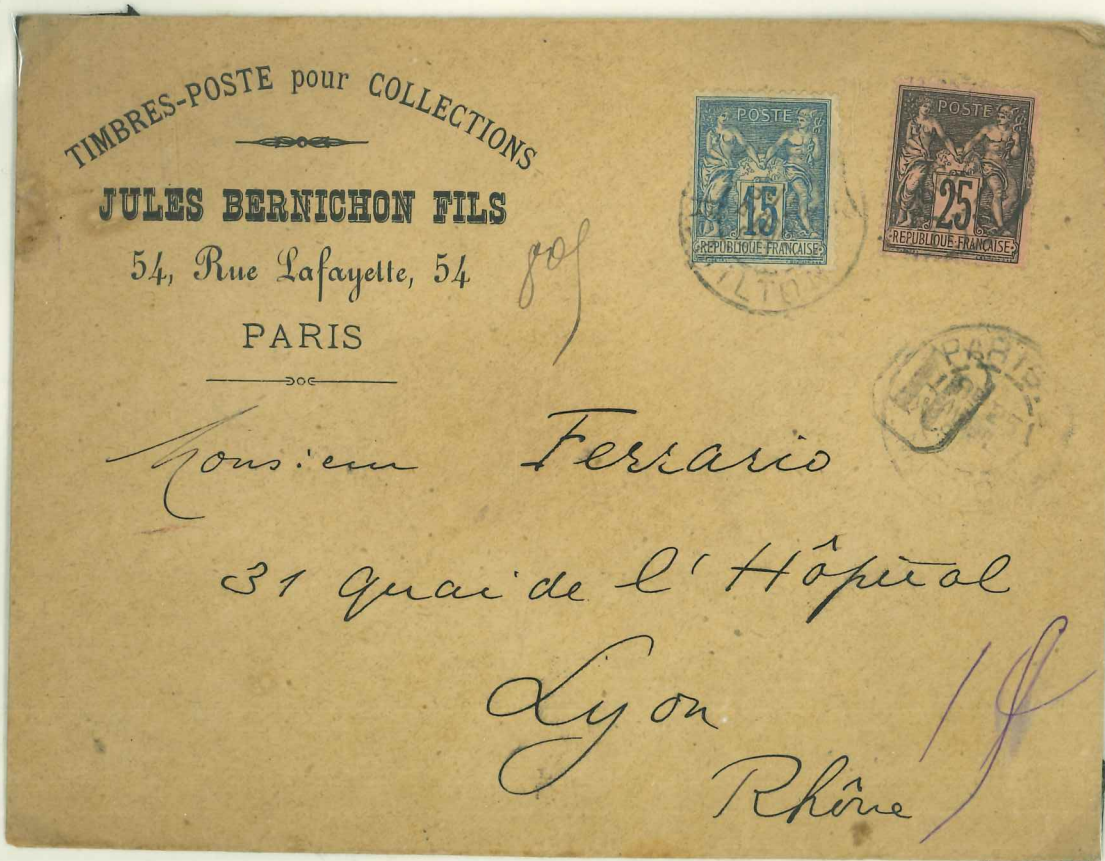 TIMBRES-POSTE pour COLLECTIONS
JULES BERNICHON FILS
54, Rue Lafayette, 54
PARIS
POSTE
15
REPUBLIQUE FRANÇAISE
POSTE
25
REPUBLIQUE FRANÇAISE
PARIS
Monsieur Ferrario
31 quai de l'Hôpital
Lyon
Rhône